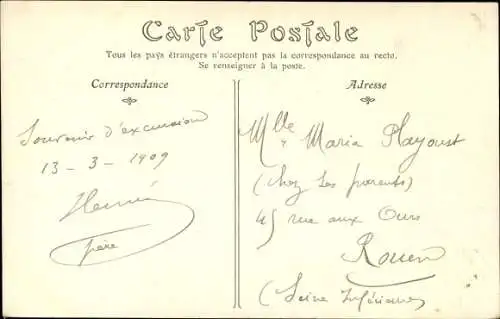 Carte Postale
Tous les pays étrangers n'acceptent pas la correspondance au recto.
Se renseigner à la poste.
Correspondance
Souvenir d'excursion
13 - 3 - 1909
frère
Adresse
Mlle Maria Playoust
(Chez Les parents)
45 rue aux Ours
Rouen
(Seine Inférieure)